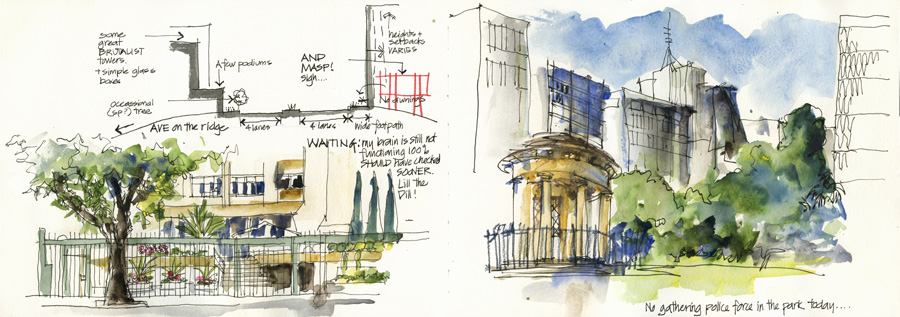 some
great
BRUTALIST
towers.
+ simple glass
boxes
occassional
(sp?) tree
A few podiums
AND
MASP!
sigh....
heights +
setbacks
VARIES
No awnings
AVE on the ridge
4 lanes
4 lanes
wide footpath
WAITING: my brain is still not
functioning 100%
SHOULD have checked
sooner.
Lill the
Dill!
No gathering police force in the park today.....